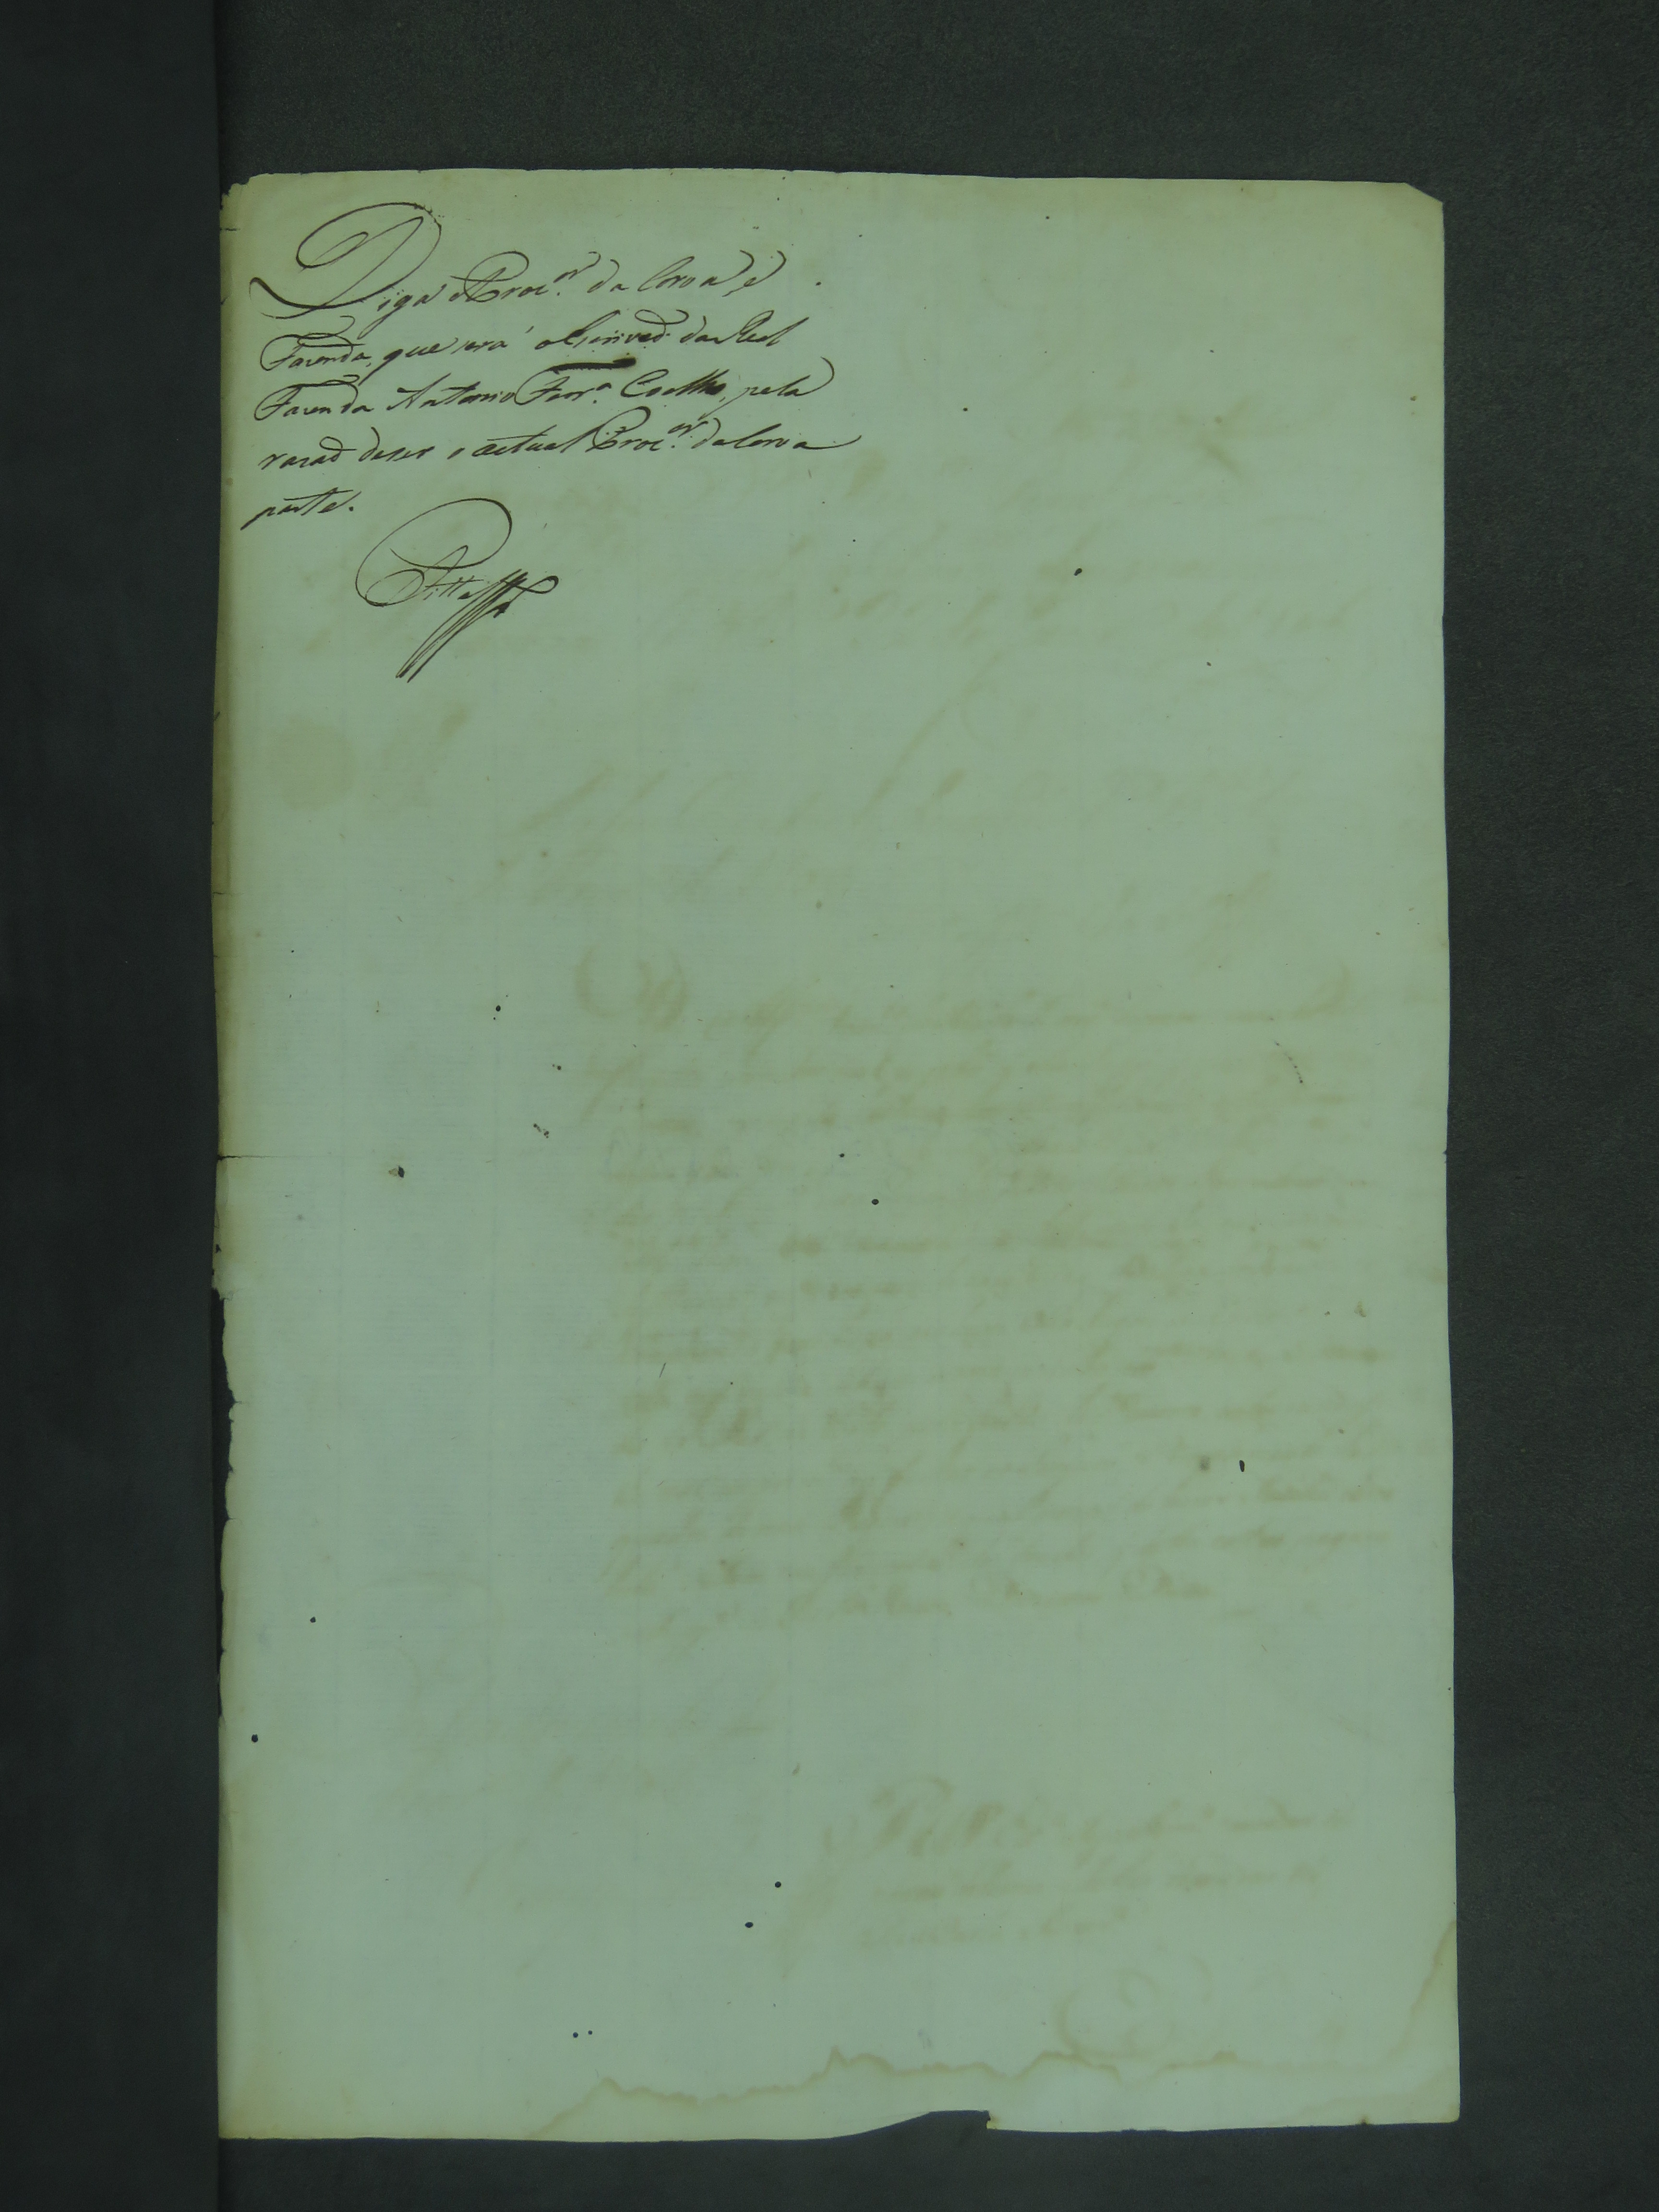 Diga o Proc.or da Coroa, e
Fazenda, que será o Escrivaõ da Real
Fazenda Antonio Ferr.a Coelho, pela
razaõ de ser o actual Proc.or da Coroa
parte.
Pitta